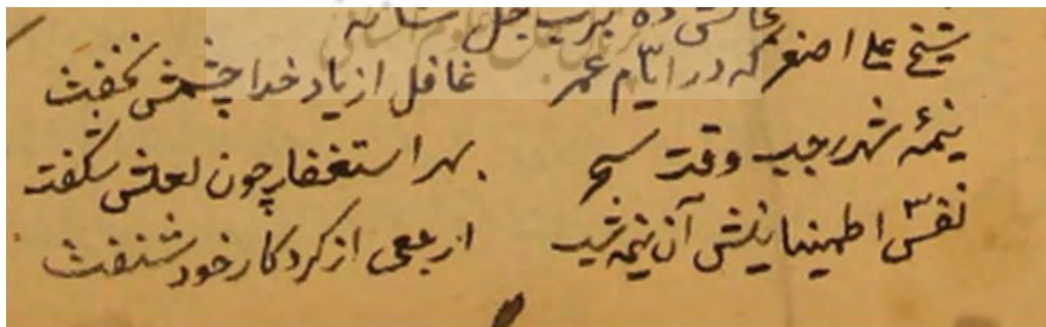 شیخ علی اصغر که در ایّام عمر غافل از یاد خدا چشمش نخفت
نیمهٔ شهر رجب وقت سحر بهر استغفار چون لعلش شگفت
نفس اطمینانیش آن نیمه شب ارجعی از کردکار خود شنفت